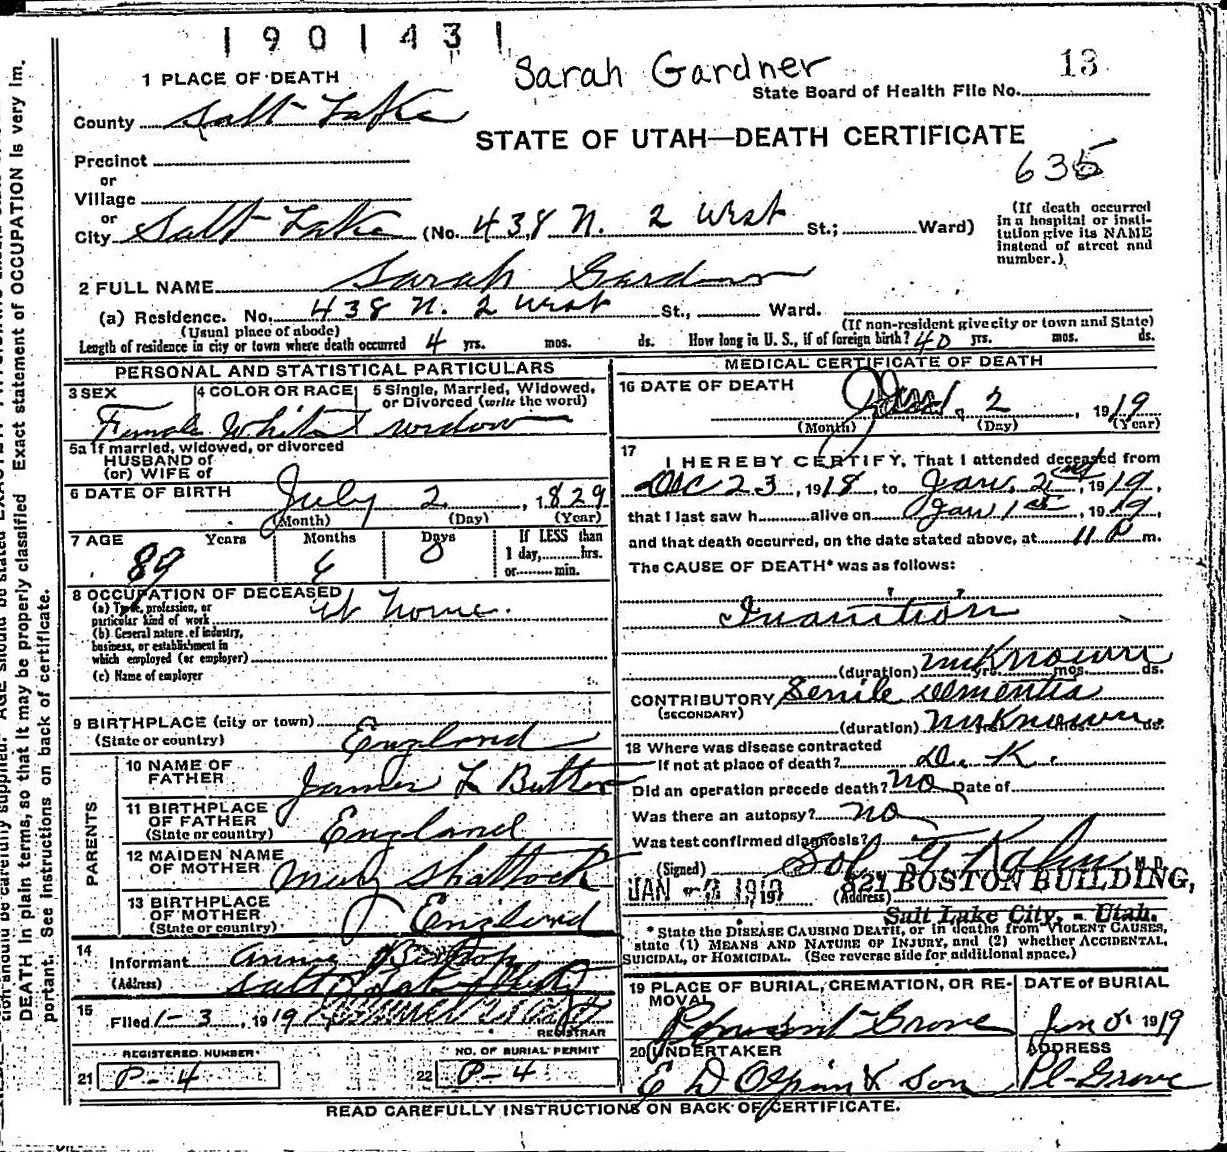 1901431
Sarah Gardner
13
1 PLACE OF DEATH
State Board of Health File No.
County Salt Lake
STATE OF UTAH—DEATH CERTIFICATE
Precinct
635
or
Village
or
City Salt Lake (No. 438 N. 2 West St.; Ward)
(If death occurred in a hospital or institution give its NAME instead of street and number.)
2 FULL NAME Sarah Gardner
(a) Residence. No. 438 N. 2 West St., Ward.
(Usual place of abode) (If non-resident give city or town and State)
Length of residence in city or town where death occurred 4 yrs. mos. ds. How long in U. S., if of foreign birth? 40 yrs. mos. ds.
PERSONAL AND STATISTICAL PARTICULARS
3 SEX Female
4 COLOR OR RACE White
5 Single, Married, Widowed, or Divorced (write the word) widow
5a If married, widowed, or divorced
HUSBAND of
(or) WIFE of
6 DATE OF BIRTH July 2, 1829
(Month) (Day) (Year)
7 AGE Years Months Days If LESS than
89 6 0 1 day, hrs.
or min.
8 OCCUPATION OF DECEASED
(a) Type, profession, or particular kind of work at home.
(b) General nature of industry, business, or establishment in which employed (or employer)
(c) Name of employer
9 BIRTHPLACE (city or town)
(State or country) England
PARENTS
10 NAME OF FATHER James L Butler
11 BIRTHPLACE OF FATHER (State or country) England
12 MAIDEN NAME OF MOTHER Mary Shattock
13 BIRTHPLACE OF MOTHER (State or country) England
14 Informant Annie Bishop
(Address) Salt Lake City
15 Filed 1-3, 1919
REGISTRAR
REGISTERED NUMBER
21 P-4
NO. OF BURIAL PERMIT
22 P-4
MEDICAL CERTIFICATE OF DEATH
16 DATE OF DEATH Jan. 2, 1919
(Month) (Day) (Year)
17 I HEREBY CERTIFY, That I attended deceased from
Dec 23, 1918, to Jan. 2, 1919,
that I last saw h alive on Jan 1st, 1919,
and that death occurred, on the date stated above, at 11 P m.
The CAUSE OF DEATH* was as follows:
Inanition
(duration) unknown yrs. mos. ds.
CONTRIBUTORY Senile dementia
(SECONDARY)
(duration) unknown ds.
18 Where was disease contracted
if not at place of death? D. K.
Did an operation precede death? no Date of
Was there an autopsy? no
Was test confirmed diagnosis?
(Signed) Sol G Kahn M. D.
JAN -2 1919, 191 (Address) 821 BOSTON BUILDING,
Salt Lake City, - Utah.
* State the DISEASE CAUSING DEATH, or in deaths from VIOLENT CAUSES, state (1) MEANS AND NATURE OF INJURY, and (2) whether ACCIDENTAL, SUICIDAL, or HOMICIDAL. (See reverse side for additional space.)
19 PLACE OF BURIAL, CREMATION, OR REMOVAL
Pleasant Grove
DATE of BURIAL
Jan 5 1919
20 UNDERTAKER
E D Olpin & Son
ADDRESS
Pl-Grove
READ CAREFULLY INSTRUCTIONS ON BACK OF CERTIFICATE.
DEATH in plain terms, so that it may be properly classified. Exact statement of OCCUPATION is very important. See instructions on back of certificate.